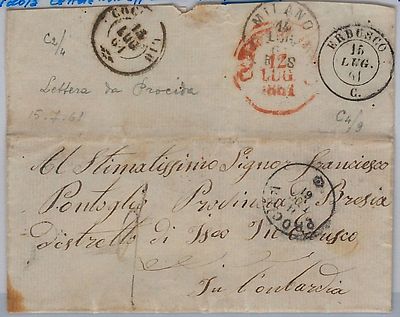 COCCAGLIO
15
LUG
61
MILANO
14
LUG
61
12
LUG
1861
ERBUSCO
15
LUG.
61
C.
C2/4
Lettera da Procida
15.7.61
C4/9
Al Stimatissimo Signor Francesco
Pontoglio Provincia Bresia
Distretto di Iseo In Erbusco
In Lonbardia
PROCIDA